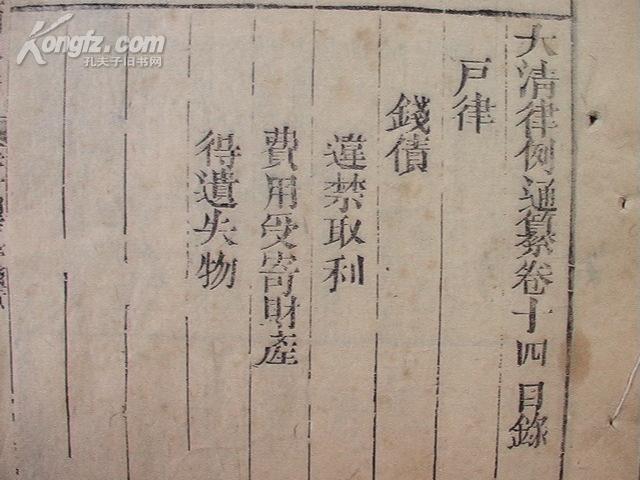 大清律例通纂卷十四目錄
戸律
錢債
違禁取利
費用受寄財產
得遺失物
Kongfz.com
孔夫子旧书网